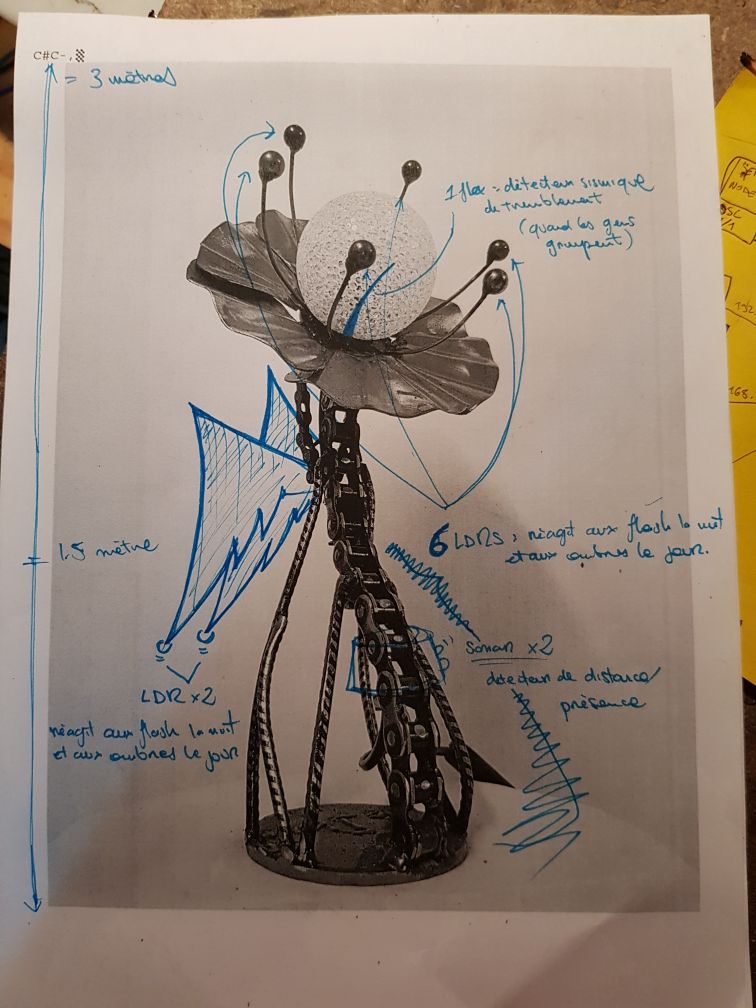 C#C-,
= 3 mètres
1 flex = détecteur sismique
de tremblement
(quand les gens
groupent)
1.5 mètre
6 LDRs : réagit aux flash la nuit
et aux ombres le jour.
Sonar x2
détecteur de distance/
présence
LDR x2
réagit aux flash la nuit
et aux ombres le jour
NODE
OSC
/1
192
168.